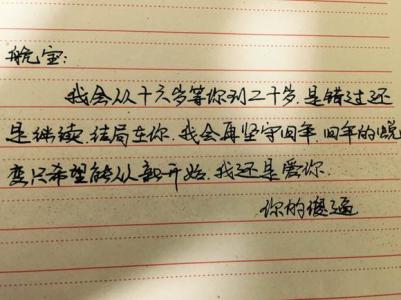 航宝：
我会从十六岁等你到二十岁.是错过还
是继续.结局在你.我会再坚守四年.四年的蜕
变只希望能从新开始.我还是爱你.
你的傻逼